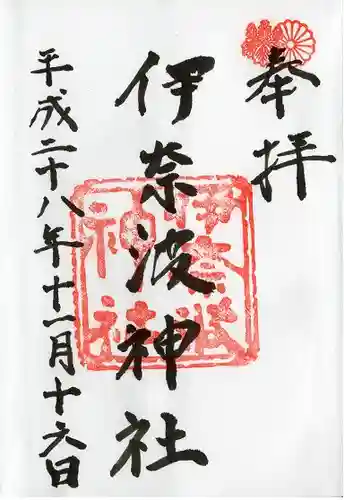 奉拝
伊奈波神社
平成二十八年十一月十六日
伊奈波
神社